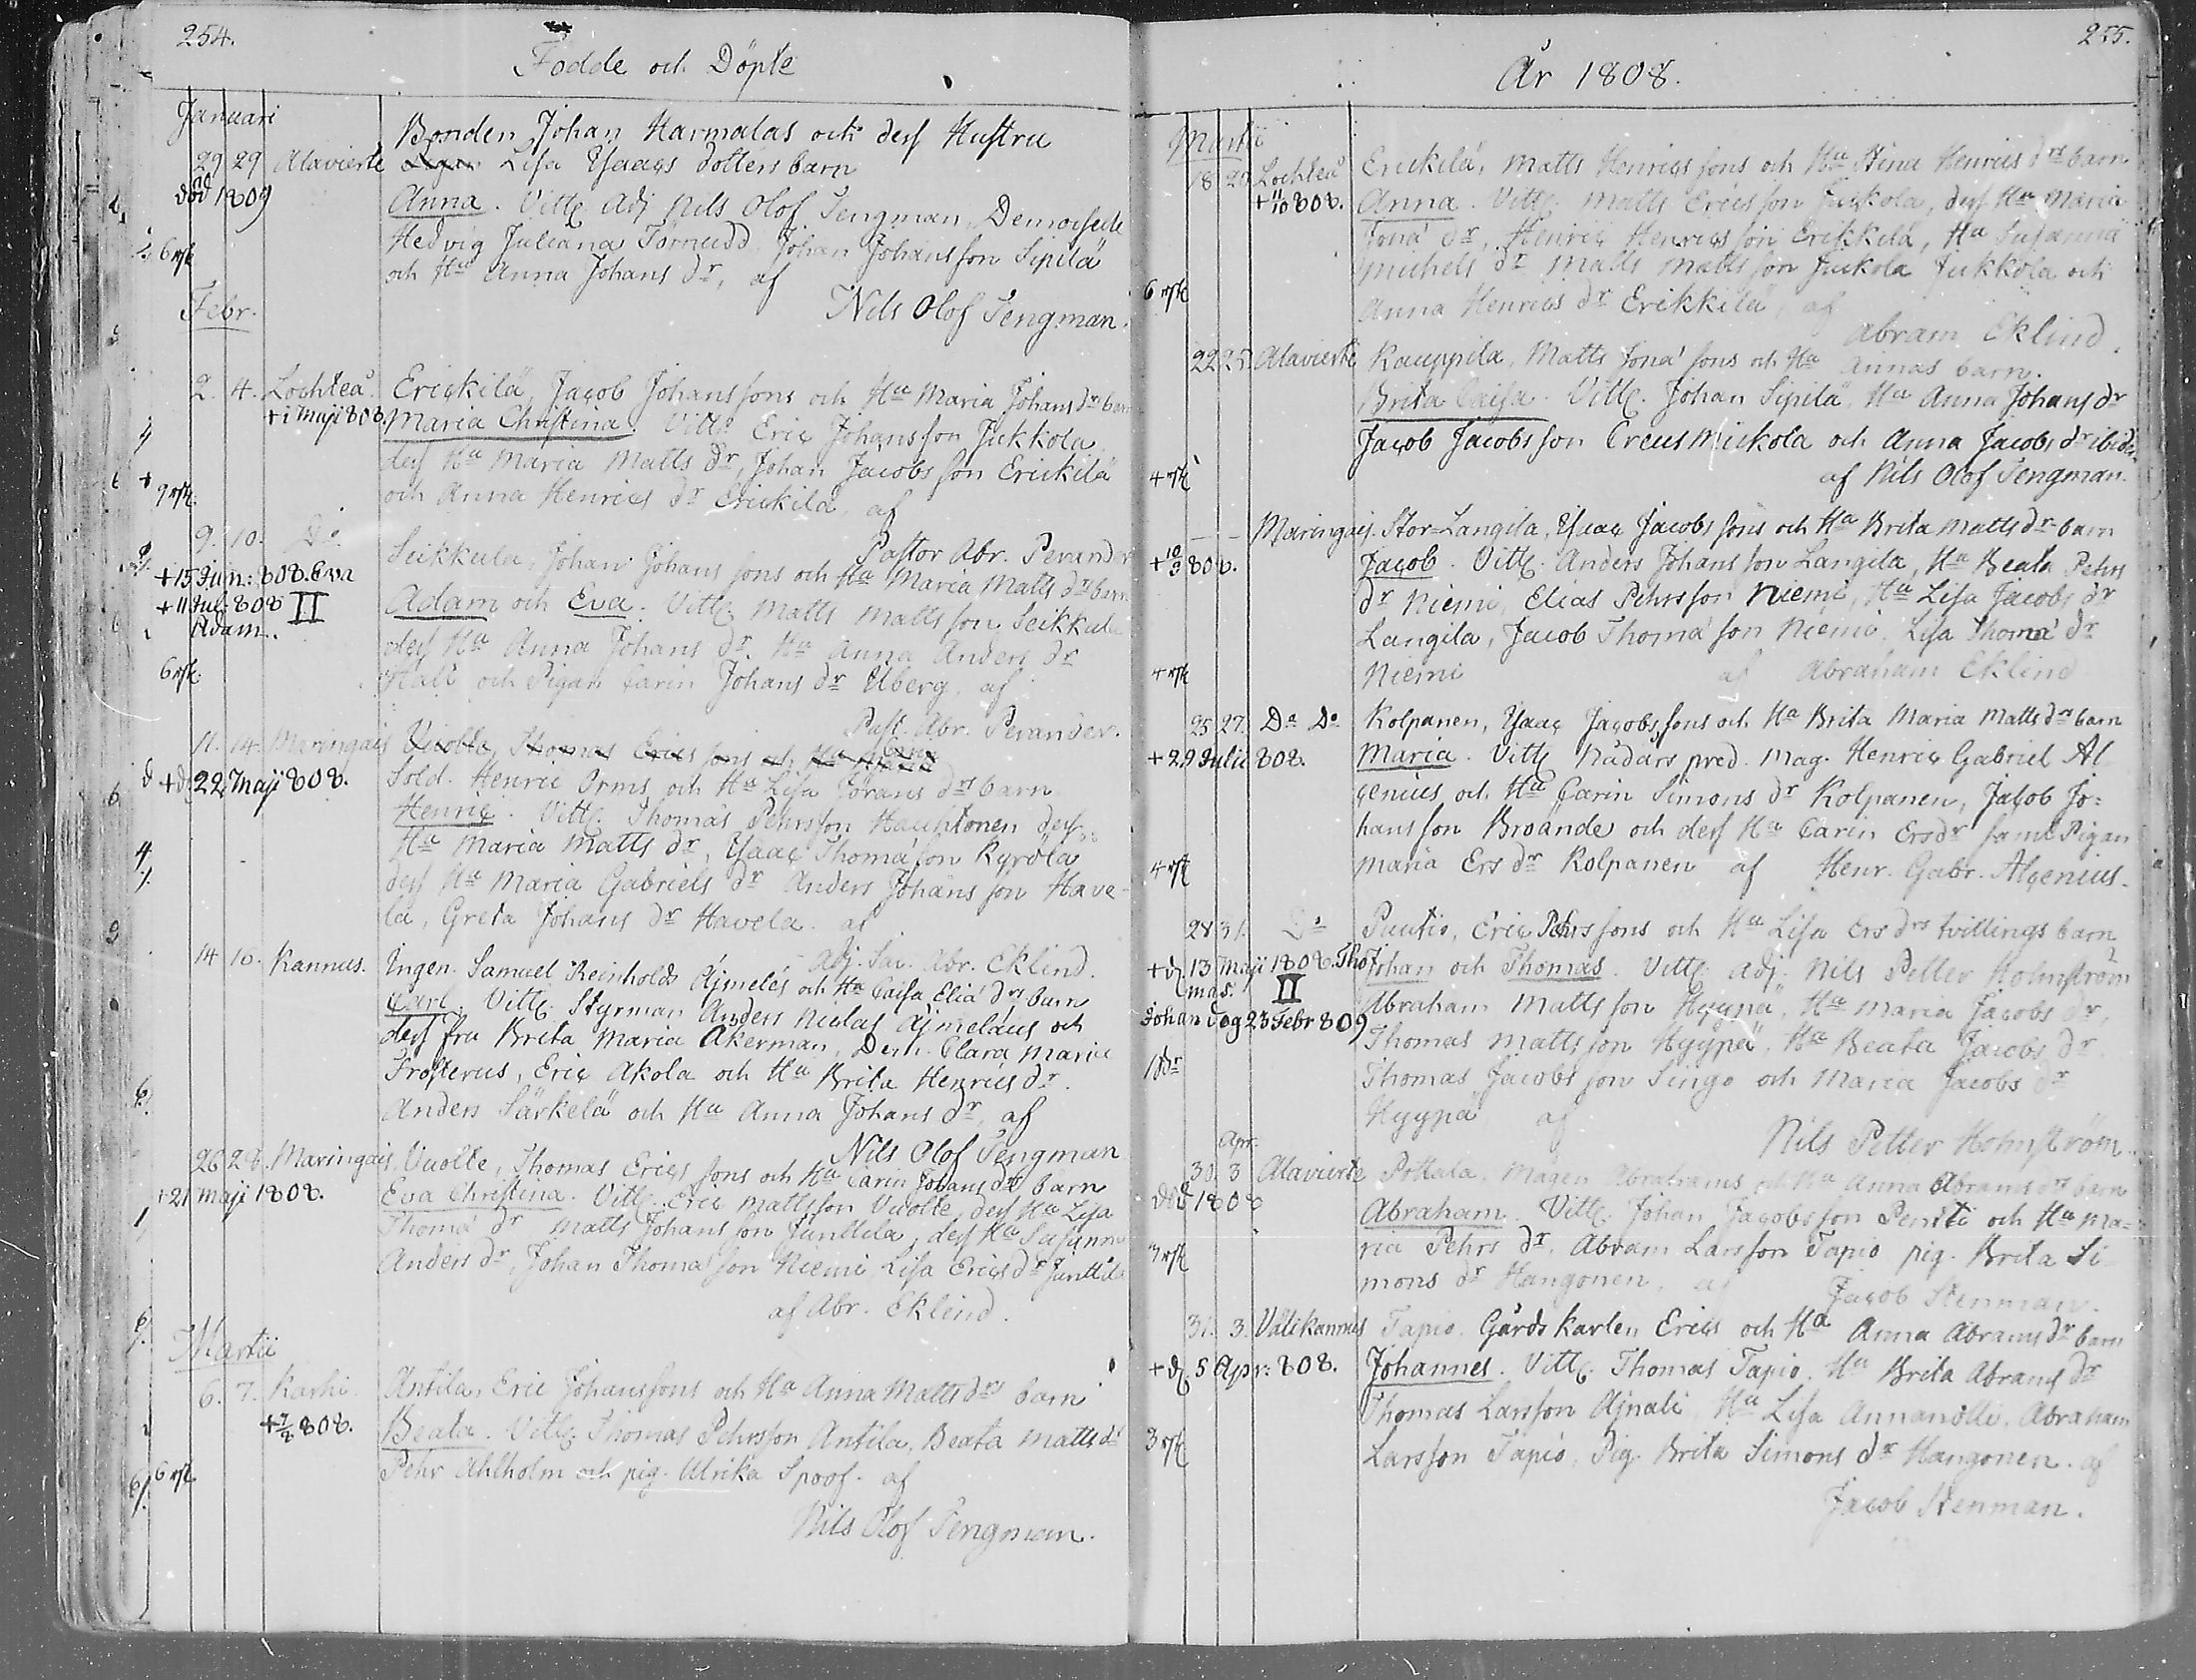 254.
Födde och Döpte
Januari
Bonden Johan Harmalas och dess Hustru
29 29 Alavierte Lisa Ysaacs dotters barn
död 1809
Anna. Vittn. Adj Nils Olof Tengman, Demoiselle
Hedvig Juliana Törnudd, Johan Johansson Sipilä
och Hu Anna Johans dr, af
6 rsk
Nils Olof Tengman.
Febr.
2. 4. Lochteå Erickilä, Jacob Johanssons och Hu Maria Johans drs barn
+ 1 Maji 808. Maria Christina. Vittn. Eric Johansson Jukkola
dess Hu Maria Matts dr, Johan Jacobsson Erickilä
och Anna Henrics dr Erickilä, af
9 rsk.
Pastor Abr. Perander
9. 10. Do Seikkula, Johan Johanssons och Hu Maria Matts drs barn
+ 15 Jun: 808. Eva
+ 11 Jul. 808 II
Adam.
Adam och Eva. Vittn. Matts Mattsson Seikkula
dess Hu Anna Johans dr. Hu Anna Anders dr
Hali och Pigan Carin Johans dr Uberg, af
6 rsk.
Past. Abr. Perander.
11. 14. Maringais Vuolte, Thomas Erics sons och Hu Carin
+ d. 22 Maji 808. Sold. Henric Orms och Hu Lisa Görans drs barn
Henric. Vittn. Thomas Pehrsson Hauhtonen dess
Hu Maria Matts dr, Ysaac Thomä son Kyrölä
dess Hu Maria Gabriels dr Anders Johansson Have-
la, Greta Johans dr Havela. af
Adj. Sac. Abr. Eklind.
14 16. Kannus. Ingen. Samuel Reinholds Ajmelés och Hu Caisa Eliä drs barn
Carl. Vittn. Styrman Anders Niclas Ajmelæus och
dess fru Brita Maria Åkerman, Dem. Clara Maria
Frosterus, Eric Akola och Hu Brita Henrics dr.
Anders Särkelä och Hu Anna Johans dr, af
Nils Olof Tengman
26 28. Maringais. Vuolte, Thomas Erics sons och Hu Carin Johans drs barn
+ 21 Maji 1808. Eva Christina. Vittn. Eric Mattsson Vuolte, dess Hu Lisa
Thomä dr Matts Johansson Junttila, dess Hu Susanna
Anders dr, Johan Thomä son Niemi, Lisa Erics dr Junttila
af Abr. Eklind.
Martii
6. 7. Karhi Antila, Eric Johanssons och Hu Anna Matts drs barn
+ 7/2 808. Beata. Vittn. Thomas Pehrsson Antila, Beata Matts dr
Pehr Ahlholm och pig. Ulrika Spoof. af
6 rsk.
Nils Olof Tengman.
255.
År 1808.
Martii
18. 20. Lochteå Erickilä, Matts Henrics sons och Hu Stina Henrics drs barn
+ 11/10 808. Anna. Vittn. Matts Ericsson Juckola, dess Hu Maria
Jonä dr, Henric Henricsson Erikkilä, Hu Susanna
Michels dr Matts Mattsson Juckola Jukkola och
Anna Henrics dr Erikkilä, af
6 rsk
Abram Eklind.
22 25. Alavierte Kauppila, Matts Jonä sons och Hu Annas barn.
Brita Caisa. Vittn. Johan Sipilä, Hu Anna Johans dr
Jacob Jacobsson Ercus Mickola och Anna Jacobs dr ibid.
4 rsk
af Nils Olof Tengman.
– – Maringais. Stor-Langila, Ysaac Jacobs sons och Hu Brita Matts drs barn
+ 10/3 808. Jacob. Vittn. Anders Johansson Langila, Hu Beata Pehrs
dr Niemi, Elias Pehrsson Niemi, Hu Lisa Jacobs dr
Langila, Jacob Thomä son Niemi, Lisa Thomä dr
4 rsk
Niemi af Abraham Eklind
25 27. Do Do Kolpanen, Ysaac Jacobs sons och Hu Brita Maria Matts drs barn
+ 29 Julii 808. Maria. Vittn. Nådårs pred. Mag. Henric Gabriel Al
cenius och Hu Carin Simons dr Kolpanen, Jacob Jo=
hansson Broände och dess Hu Carin Ers dr samt Pigan
4 rsk
Maria Ers dr Kolpanen af Henr. Gabr. Alcenius.
28 31. Do Puutio, Eric Pehrs sons och Hu Lisa Ers drs tvillings barn
+ d. 13 Maji 1808. Tho Johan och Thomas. Vittn. Adj. Nils Petter Holmström
mas. II
Abraham Mattsson Hyypä, Hu Maria Jacobs dr,
Johan dog 23 Febr 809
Thomas Mattsson Hyypä, Hu Beata Jacobs dr
Thomas Jacobsson Singo och Maria Jacobs dr
Hyypä af
Nils Petter Holmström.
Apr.
30. 3 Alavierte Pottala, Mågen Abrahams och Hu Anna Abrams drs barn
död 1808
Abraham. Vittn. Johan Jacobsson Pentti och Hu Ma=
ria Pehrs dr, Abram Larsson Tapio pig. Brita Si
3 rsk
mons dr Hangonen, af Jacob Stenman.
31. 3. Välikannus Tapio. Gårdskarlen Erics och Hu Anna Abrams drs barn
+ d. 5 Apr: 808. Johannes. Vittn. Thomas Tapio. Hu Brita Abrams dr
Thomas Larsson Ajnali, Hu Lisa Annanolli, Abraham
3 rsk
Larsson Tapio, Pig. Brita Simons dr Hangonen. af
Jacob Stenman.